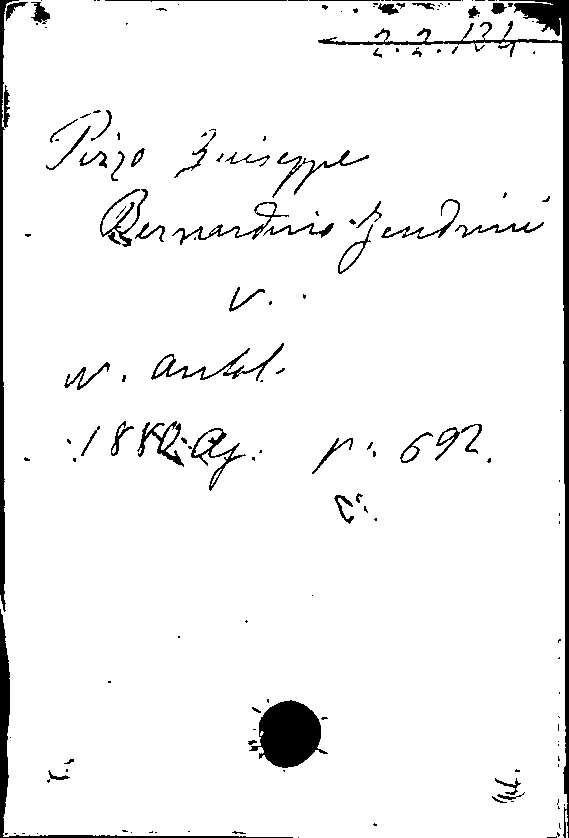 2.2.134.
Pizzo Giuseppe
Bernardino Zendrini
V.
N. Antol.
1880. Ag. p. 692.